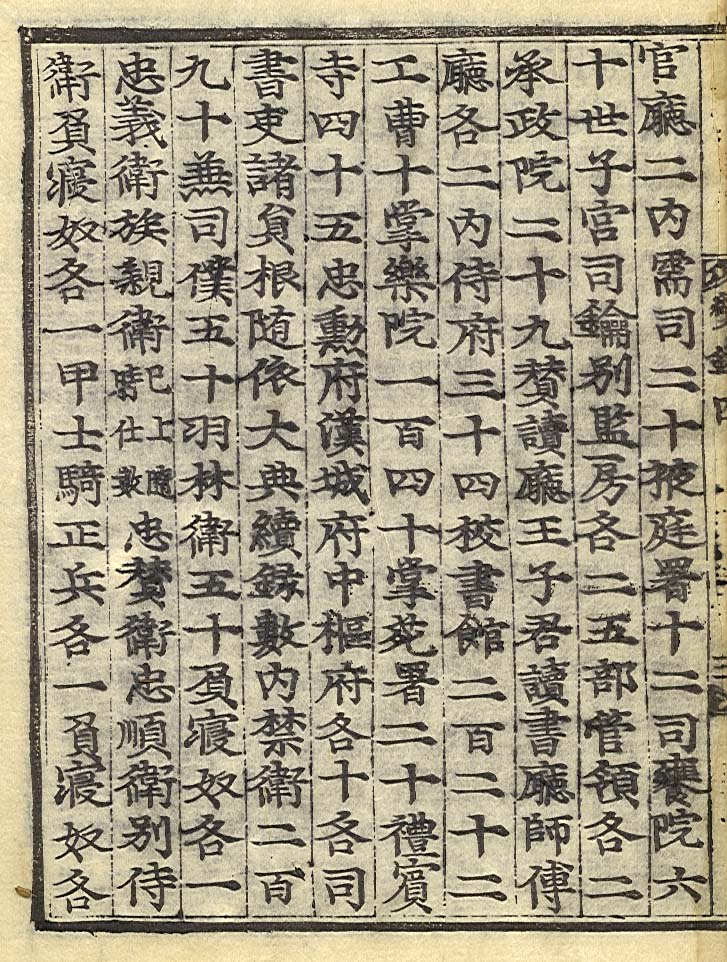 官廳二內需司二十掖庭署十二司饔院六
十世子宮司鑰別監房各二五部管領各二
承政院二十九賛讀廳王子君讀書廳師傅
廳各二內侍府三十四校書館二百二十二
工曹十掌樂院一百四十掌苑署二十禮賓
寺四十五忠勳府漢城府中樞府各十各司
書吏諸負根随依大典續録數內禁衛二百
九十兼司僕五十羽林衛五十負寢奴各一
忠義衛族親衛已上隨時仕數忠賛衛忠順衛別侍
衛負寢奴各一甲士騎正兵各一負寢奴各